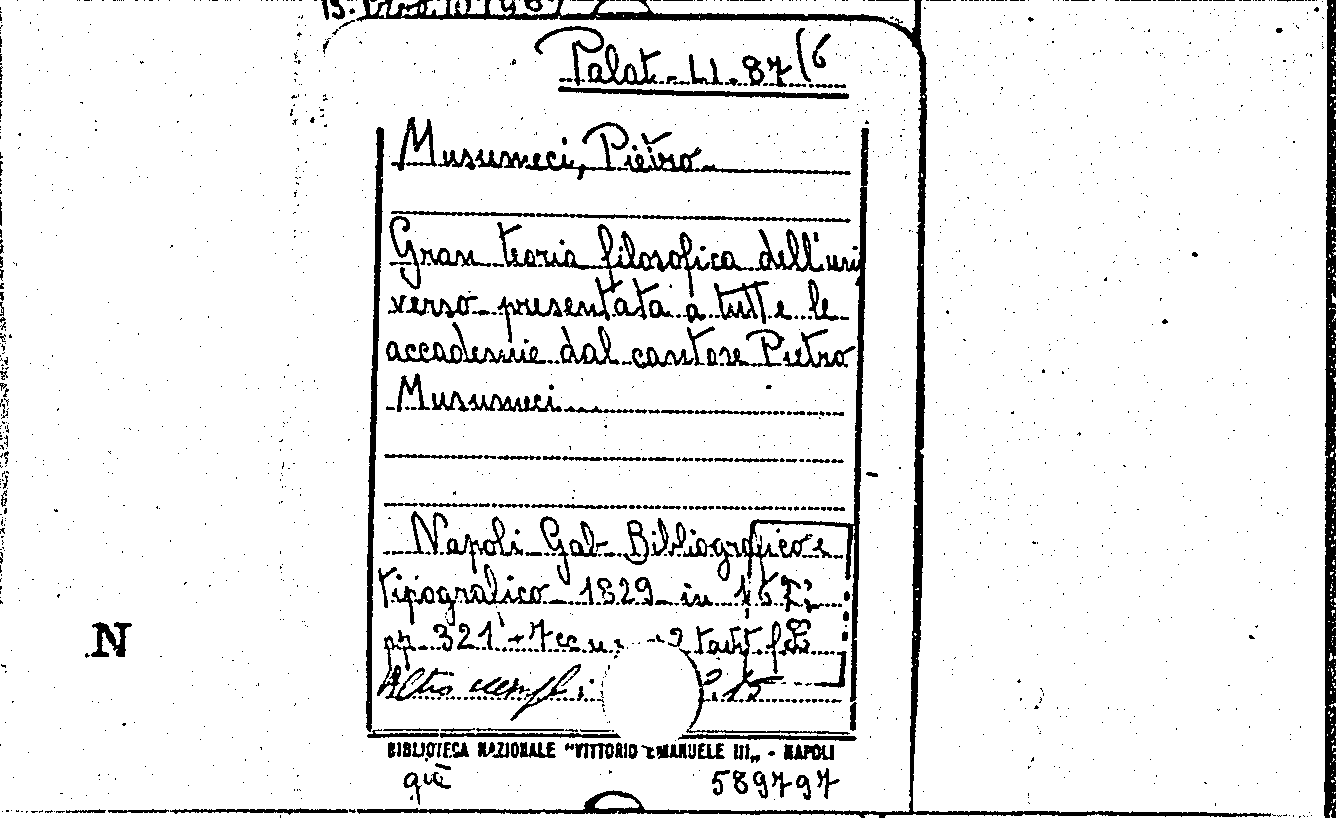 Palat. LI. 87/6
Musumeci, Pietro
Gran teoria filosofica dell'uni
verso presentata a tutte le
accademie dal cantore Pietro
Musumeci...
Napoli Gab Bibliografico e
tipografico 1829 in 16°
pp. 321 + 7 cc 2 tavv
Altro esempl: 15
N
BIBLIOTECA NAZIONALE "VITTORIO EMANUELE III„ - NAPOLI
què 589797